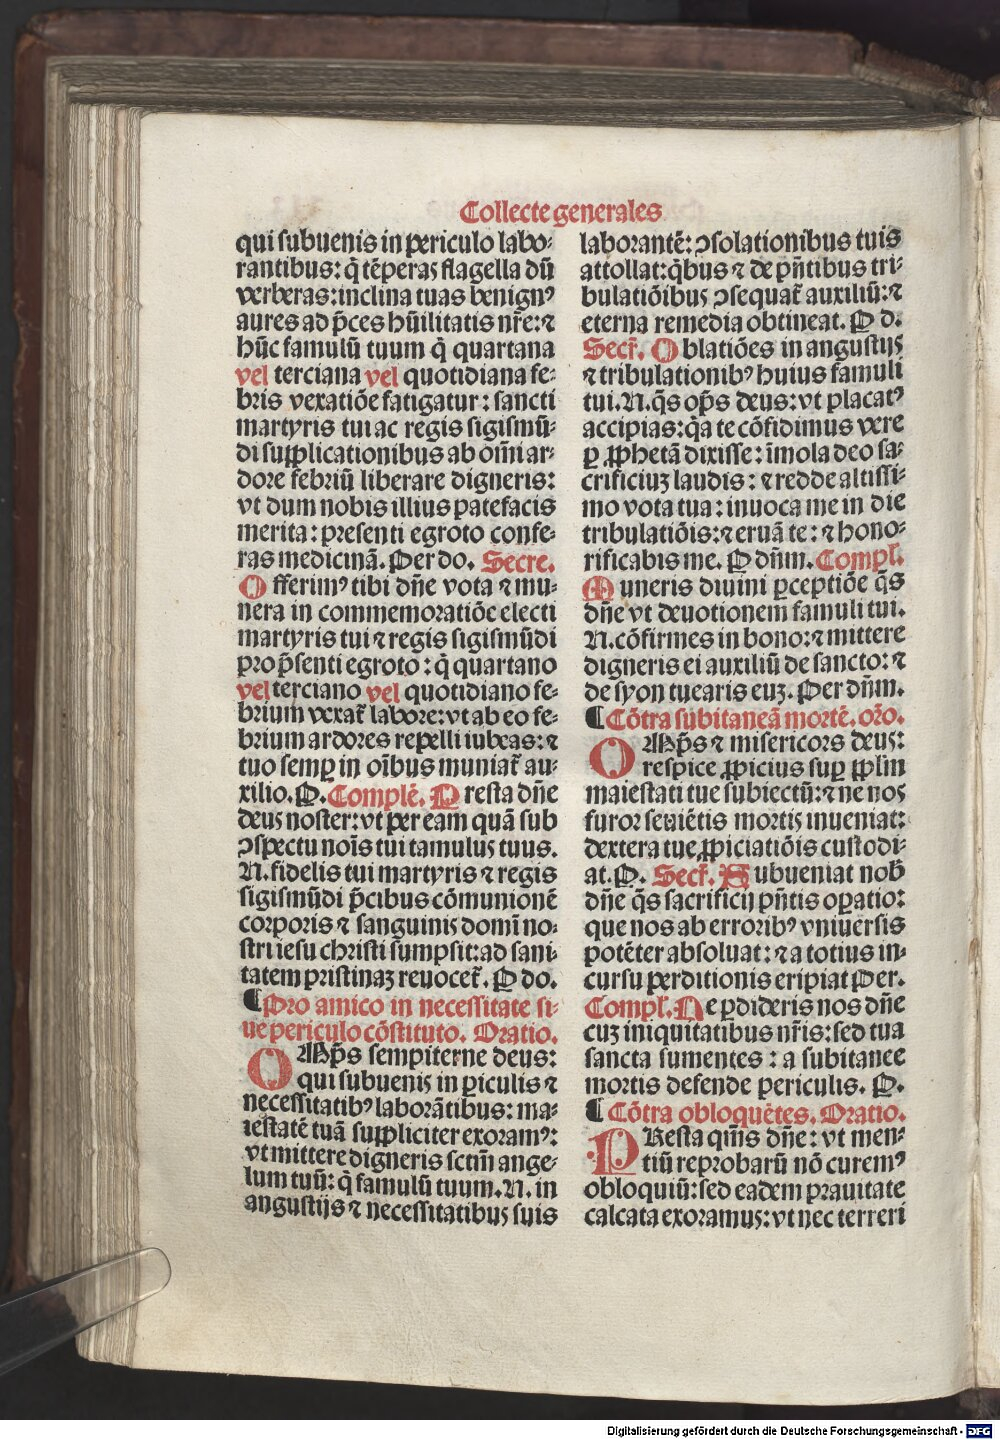 Collecte generales
qui subuenis in periculo labo-
rantibus: q̄ tēperas flagella dū
verberas: inclina tuas benignꝰ
aures ad p̄ces hūilitatis nr̄e: ⁊
hūc famulū tuum q̄ quartana
vel terciana vel quotidiana fe-
bris vexatiōe fatigatur: sancti
martyris tui ac regis sigismū-
di suꝓplicationibus ab om̄i ar-
dore febriū liberare digneris:
vt dum nobis illius patefacis
merita: presenti egroto confe-
ras medicinā. Per do. Secre.
Offerimꝰ tibi dn̄e vota ⁊ mu-
nera in commemoratiōe electi
martyris tui ⁊ regis sigismūdi
pro p̄senti egroto: q̄ quartano
vel terciano vel quotidiano fe-
brium vexat̄ labore: vt ab eo fe-
brium ardores repelli iubeas: ⁊
tuo semꝑ in oībus muniat̄ au-
xilio. P. Complē. Presta dn̄e
deus noster: vt per eam quā sub
ↄspectu noīs tui famulus tuus.
N. fidelis tui martyris ⁊ regis
sigismūdi p̄cibus cōmunionē
corporis ⁊ sanguinis domī no-
stri iesu christi sumpsit: ad sani-
tatem pristinaꝫ reuocet̄. P do.
¶ Pro amico in necessitate si-
ue periculo cōstituto. Oratio.
OMnp̄s sempiterne deus:
qui subuenis in ꝑiculis ⁊
necessitatibꝰ laborātibus: ma-
iestatē tuā supꝓliciter exoramꝰ:
vt mittere digneris sctm̄ ange-
lum tuū: q̄ famulū tuum. N. in
angustijs ⁊ necessitatibus suis
laborantē: ↄsolationibus tuis
attollat: q̄bus ⁊ de pn̄tibus tri-
bulatiōibus ↄsequat̄ auxiliū: ⁊
eterna remedia obtineat. P d.
Secr̄. Oblatiōes in angustijs
⁊ tribulationibꝰ huius famuli
tui. N. q̄s op̄s deus: vt placatꝰ
accipias: q̄a te cōfidimus vere
ꝑ ꝓphetā dixisse: īmola deo sa-
crificiuꝫ laudis: ⁊ redde altissi-
mo vota tua: inuoca me in die
tribulatiōis: ⁊ eruā te: ⁊ hono-
rificabis me. P dn̄m. Compl̄.
Muneris diuini ꝑceptiōe q̄s
dn̄e vt deuotionem famuli tui.
N. cōfirmes in bono: ⁊ mittere
digneris ei auxiliū de sancto: ⁊
de syon tuearis euꝫ. Per dn̄m.
¶ Cōtra subitaneā mortē. or̄o.
OMnp̄s ⁊ misericors deus:
respice ꝓpicius suꝑ ꝓplm̄
maiestati tue subiectū: ⁊ ne nos
furor seuiētis mortis inueniat:
dextera tue ꝓpiciatiōis custodi-
at. P. Secr̄. Subueniat nob̄
dn̄e q̄s sacrificij pn̄tis oꝑatio:
que nos ab erroribꝰ vniuersis
potēter absoluat: ⁊ a totius in-
cursu perditionis eripiat Per.
Compl̄. Ne ꝑdideris nos dn̄e
cuꝫ iniquitatibus nr̄is: sed tua
sancta sumentes: a subitanee
mortis defende periculis. P.
¶ Cōtra obloquētes. Oratio.
PResta qm̄s dn̄e: vt men-
tiū reprobarū nō curemꝰ
obloquiū: sed eadem prauitate
calcata exoramus: vt nec terreri
Digitalisierung gefördert durch die Deutsche Forschungsgemeinschaft - DFG